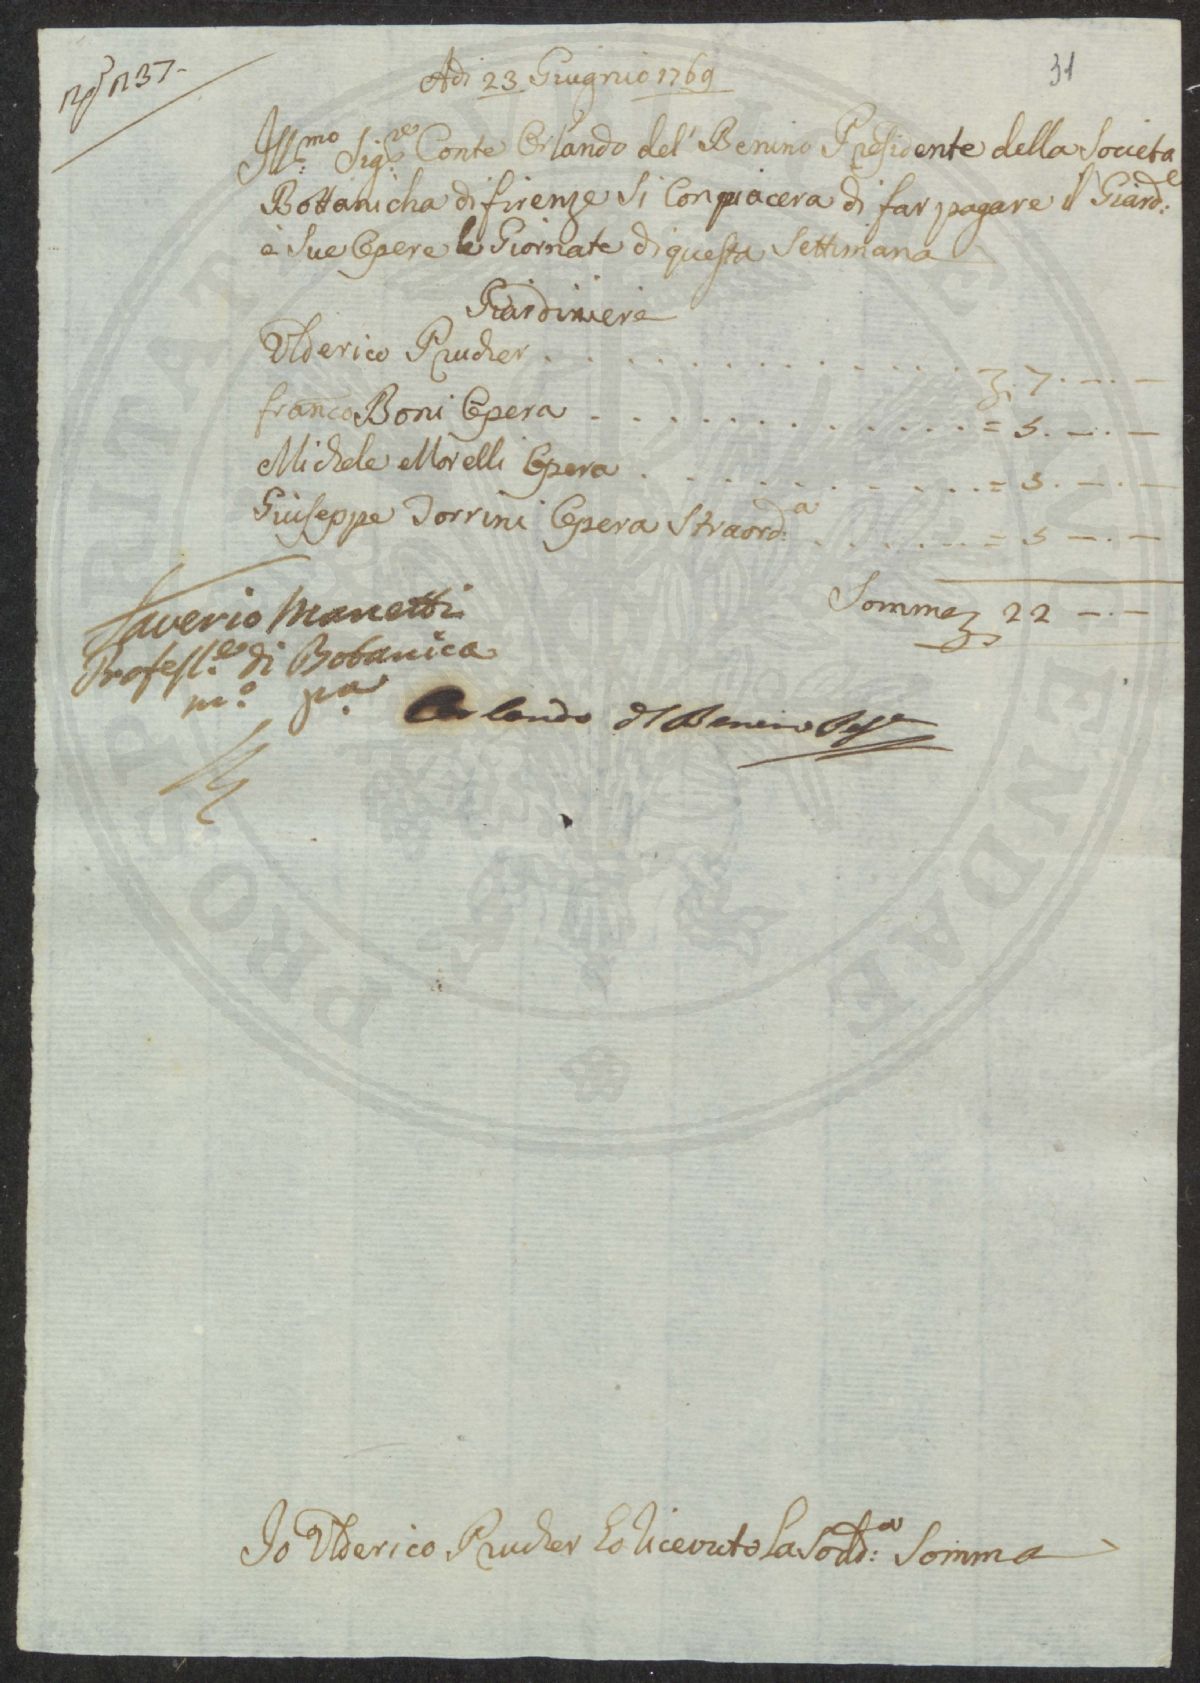 n° 37-
31
Adi 23 Giugnio 1769
Ill:mo Sig:re Conte Orlando del' Benino Presidente della Societa
Bottanicha di firenze Si Conpiacera di far pagare il Giard:e
è Sue Opere le Giornate di questa Settimana
Giardiniere
Ulderico Prucher . . . . . . . . . . . 7. —. —
franco Boni Opera . . . . . . . . . . . = 5. —. —
Michele Morelli Opera . . . . . . . . . . = 5. —. —
Giuseppe Dorrini Opera Straord:a . . . . . . . = 5 —. —
Somma 22 —. —
Saverio Manetti
Profess:e di Botanica
m:o p:a
Orlando del Benino Pres:e
Io Ulderico Prucher ho ricevuto la Sodd:a Somma
PROSPERITATI PUBLICAE AUGENDAE